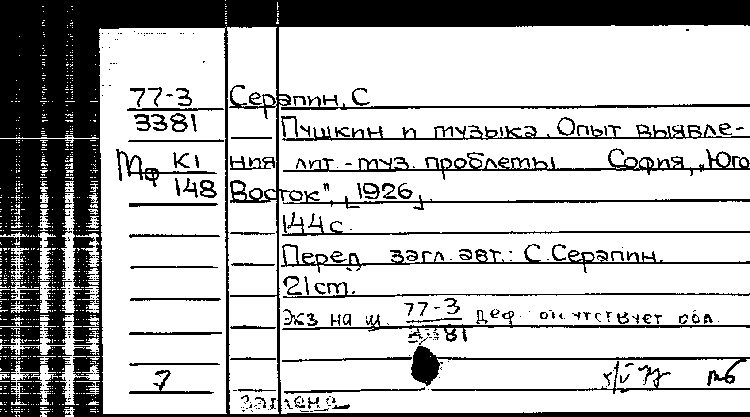 77-3 Серапин, С
3381 Пушкин и музыка. Опыт выявле-
Мф К1 ния лит.-муз. проблемы София, „Юго
148 Восток", [1926].
144 с.
Перед загл. авт.: С. Серапин.
21 cm.
Экз на ш. 77-3 Деф. отсутствует обл.
3381
7
замена